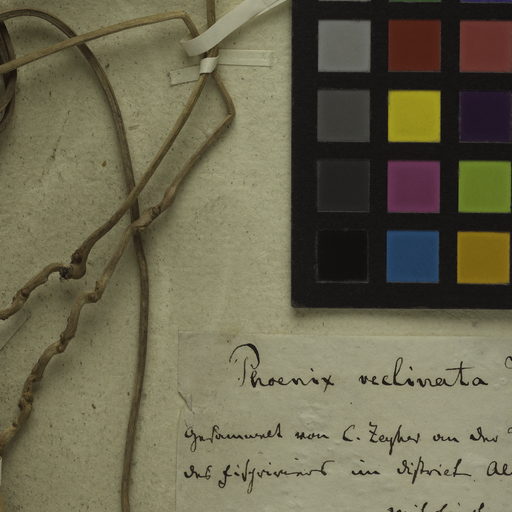 Phoenix reclinata
Gesammelt von C. Zeyher an der
des Fischriviers im district Al